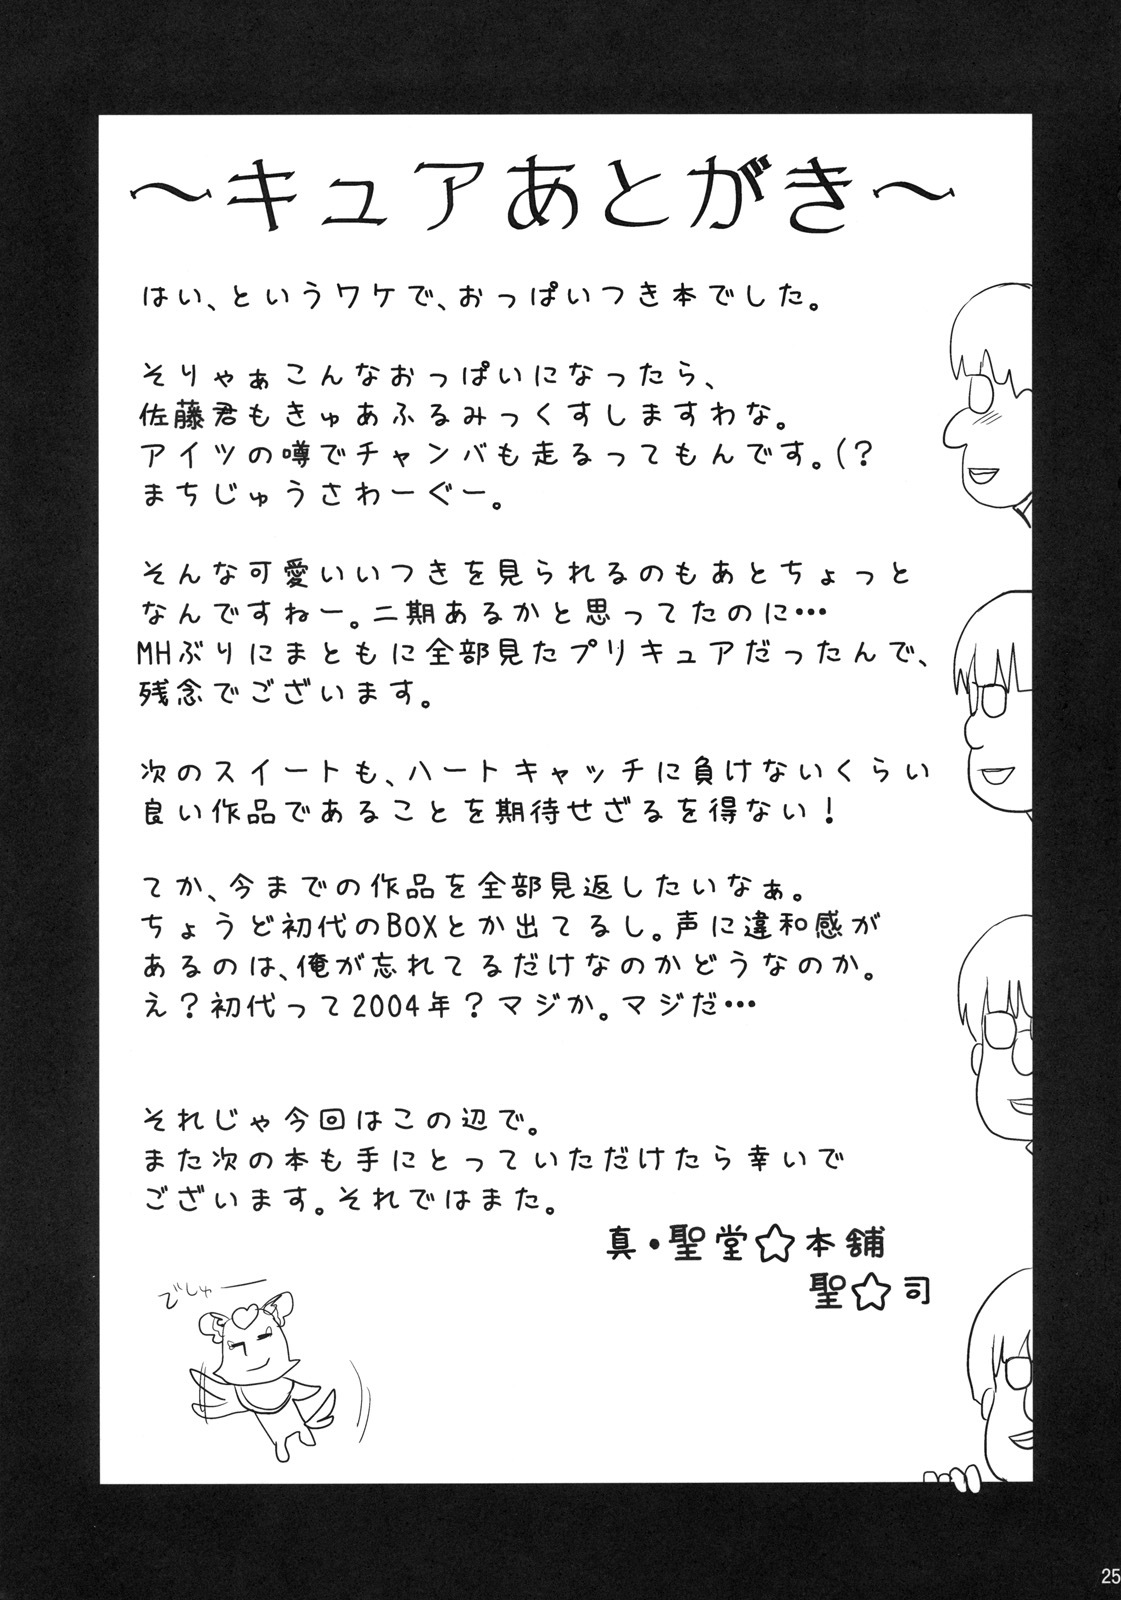 ～キュアあとがき～
はい、というワケで、おっぱいつき本でした。
そりゃぁこんなおっぱいになったら、
佐藤君もきゅあふるみっくすしますわな。
アイツの噂でチャンバも走るってもんです。(?
まちじゅうさわーぐー。
そんな可愛いいつきを見られるのもあとちょっと
なんですねー。二期あるかと思ってたのに…
MHぶりにまともに全部見たプリキュアだったんで、
残念でございます。
次のスイートも、ハートキャッチに負けないくらい
良い作品であることを期待せざるを得ない!
てか、今までの作品を全部見返したいなぁ。
ちょうど初代のBOXとか出てるし。声に違和感が
あるのは、俺が忘れてるだけなのかどうなのか。
え?初代って2004年?マジか。マジだ…
それじゃ今回はこの辺で。
また次の本も手にとっていただけたら幸いで
ございます。それではまた。
真・聖堂☆本舗
聖☆司
でしゅー
25